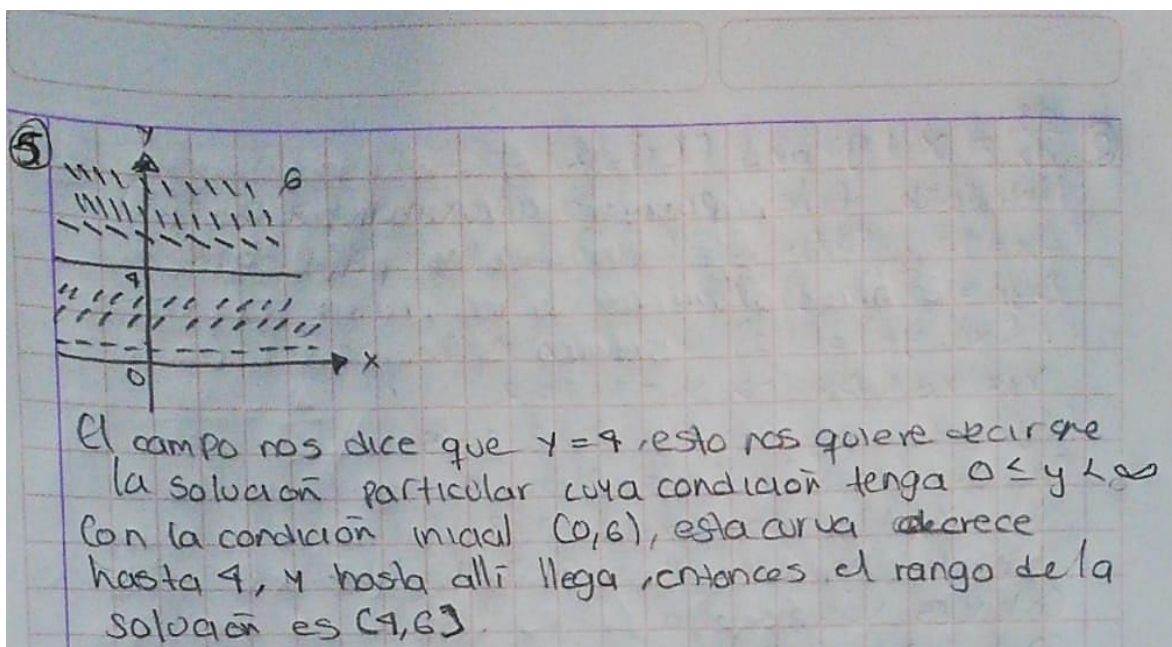 5
Y
6
4
X
0
El campo nos dice que y=4, esto nos quiere decir que
la solución particular cuya condición tenga 0≤y<∞
Con la condición inicial (0,6), esta curva decrece
hasta 4, y hasta allí llega, entonces el rango de la
solución es (4,6]